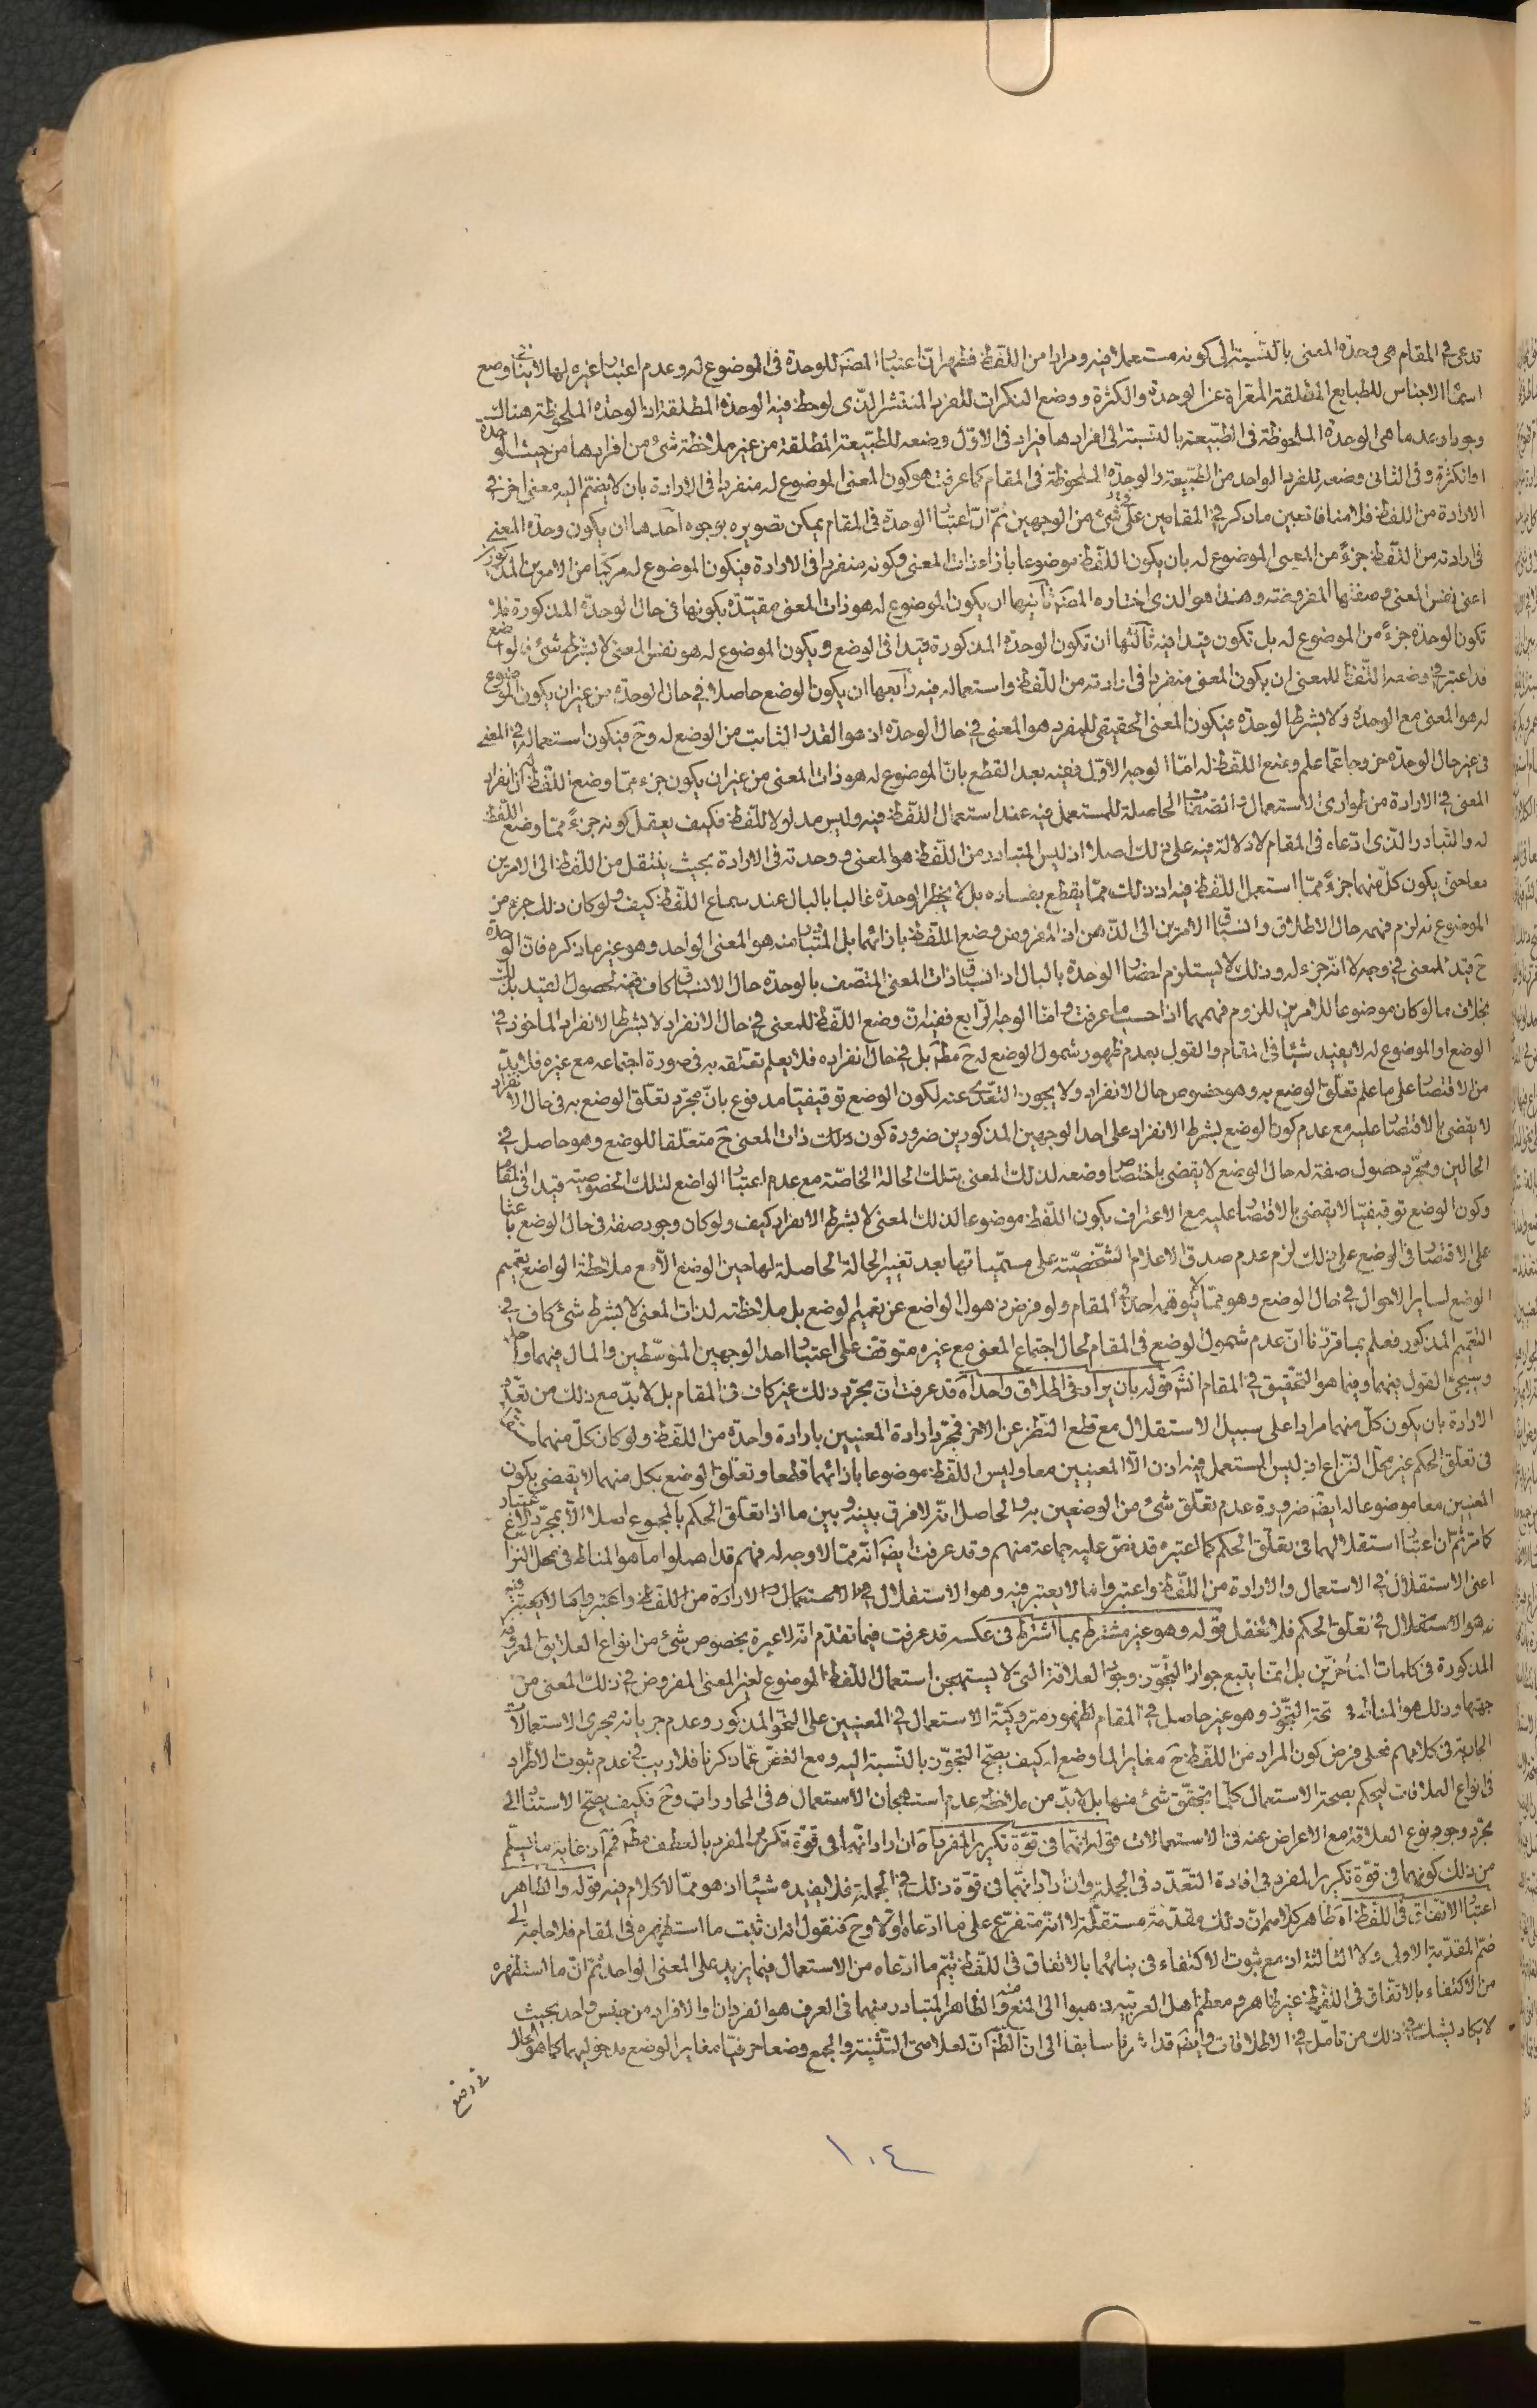 تدعى في المقام هى وحدة المعنى بالنسبة الى كونه مستعملا فيه ومرادا من اللفظ فظهر ان اعتبار المصنّف للوحدة فى الموضوع له وعدم اعتبار غيره لها لا ينافى وضع
اسماء الاجناس للطبايع المطلقة المعراة عن الوحدة والكثرة ووضع النكرات للفرد المنتشر الذى لوحظ فيه الوحدة المطلقة اذ الوحدة الملحوظة هناك
وجودا وعدما هى الوحدة الملحوظة فى الطبيعة بالنسبة الى افرادها فيراد فى الاول وضعه للطبيعة المطلقة من غير ملاحظة شئ من افرادها من حيث الوحدة
او الكثرة وفى الثانى وضعه للفرد الواحد من الطبيعة والوحدة الملحوظة فى المقام كما عرفت هو كون المعنى الموضوع له منفردا فى الارادة بان لا يضم اليه معنى اخر في
الارادة من اللفظ فلا منافاة بين ما ذكر في المقامين على شئ من الوجهين ثم ان اعتبار الوحدة فى المقام يمكن تصويره بوجوه احدها ان يكون وحدة المعنى
فى ارادته من اللفظ جزءً من المعنى الموضوع له بان يكون اللفظ موضوعا بازاء ذات المعنى وكونه منفردا فى الارادة فيكون الموضوع له مركبا من الامرين المذكورين
اعنى نفس المعنى وصفتها المفروضة وهذا هو الذى اختاره المصنّف ثانيها ان يكون الموضوع له هو ذات المعنى مقيدة بكونها فى حال الوحدة المذكورة فلا
تكون الوحدة جزءً من الموضوع له بل تكون قيدا فيه ثالثها ان تكون الوحدة المذكورة قيدا فى الوضع ويكون الموضوع له هو نفس المعنى لا بشرط شئ فالواضع
قد اعتبر في وضعه اللفظ للمعنى ان يكون المعنى منفردا فى ارادته من اللفظ واستعماله فيه رابعها ان يكون الوضع حاصلا في حال الوحدة من غير ان يكون الموضوع
له هو المعنى مع الوحدة ولا بشرط الوحدة فيكون المعنى الحقيقى للمفرد هو المعنى في حال الوحدة اذ هو القدر الثابت من الوضع له وح فيكون استعماله في المعنى
فى غير حال الوحدة خروجا عما علم وضع اللفظ له اما الوجه الاول ففيه بعد القطع بان الموضوع له هو ذات المعنى من غير ان يكون جزء مما وضع اللفظ له ان انفراد
المعنى في الارادة من طوارى الاستعمال والصفات الحاصلة للمستعمل فيه عند استعمال اللفظ فيه وليس مدلولا للفظ فكيف يعقل كونه جزءً مما وضع اللفظ
له والتبادر الذى ادعاه فى المقام لا دلالة فيه على ذلك اصلا اذ ليس المتبادر من اللفظ هو المعنى ووحدته فى الارادة بحيث ينتقل من اللفظ الى الامرين
معا حتى يكون كل منهما جزءً مما استعمل اللفظ فيه اذ ذلك مما يقطع بفساده بل لا يخطر الوحدة غالبا بالبال عند سماع اللفظ كيف ولو كان ذلك جزء من
الموضوع له لزم فهمه حال الاطلاق وانسباق الامرين الى الذهن اذ المفروض وضع اللفظ بازائهما بل المتبادر منه هو المعنى الواحد وهو غير ما ذكره فان الوحدة
ح قيد للمعنى في وجه لا انه جزء له وذلك لا يستلزم احضار الوحدة بالبال اذ انسباق ذات المعنى المتصف بالوحدة حال الانسباق كاف فى حصول القيد بذلك
بخلاف ما لو كان موضوعا للامرين للزوم فهمهما اذا حسبما عرفت واما الوجه الرابع ففيه ان وضع اللفظ للمعنى في حال الانفراد لا بشرط الانفراد الماخوذ في
الوضع او الموضوع له لا يفيد شيئا فى المقام والقول بعدم ظهور شمول الوضع له ح مط بل في حال انفراده فلا يعلم تعلقه به فى صورة اجتماعه مع غيره فلا بد
من الاقتصار على ما علم تعلق الوضع به وهو خصوص حال الانفراد ولا يجوز التعدى عنه لكون الوضع توقيفيا مدفوع بان مجرد تعلق الوضع به فى حال الانفراد
لا يقضى بالاقتصار عليه مع عدم كون الوضع بشرط الانفراد على احد الوجهين المذكورين ضرورة كون ذلك ذات المعنى ح متعلقا للوضع وهو حاصل في
الحالين ومجرد حصول صفة له حال الوضع لا يقضى باختصاص وضعه لذلك المعنى بتلك الحالة الخاصة مع عدم اعتبار الواضع لتلك الخصوصية قيدا فى المقام
وكون الوضع توقيفيا لا يقضى بالاقتصار عليه مع الاعتراف بكون اللفظ موضوعا لذلك المعنى لا بشرط الانفراد كيف ولو كان وجود صفة فى حال الوضع باعثا
على الاقتصار فى الوضع على ذلك لزم عدم صدق الاعلام الشخصية على مسمياتها بعد تغيير الحالة الحاصلة لها حين الوضع الا مع ملاحظة الواضع تعميم
الوضع لساير الاحوال في حال الوضع وهو مما لا يتوهمه احد في المقام ولو فرض ذهول الواضع عن تعميم الوضع بل ملاحظته لذات المعنى لا بشرط شئ كاف في
التعميم المذكور فعلم بما قررنا ان عدم شمول الوضع فى المقام لحال اجتماع المعنى مع غيره متوقف على اعتبار احد الوجهين المتوسطين والمال فيهما واحد
وسيجئ القول فيهما وفيما هو التحقيق في المقام انش قوله بان يراد فى اطلاق واحد اه قد عرفت ان مجرد ذلك غير كاف فى المقام بل لا بد مع ذلك من تعدد
الارادة بان يكون كل منهما مرادا على سبيل الاستقلال مع قطع النظر عن الاخر فمجرد ارادة المعنيين بارادة واحدة من اللفظ ولو كان كل منهما مستقلا
فى تعلق الحكم غير محل النزاع اذ ليس المستعمل فيه اذن الا المعنيين معا وليس اللفظ موضوعا بازائهما قطعا وتعلق الوضع بكل منهما لا يقضى بكون
المعنيين معا موضوعا له ايضا ضرورة عدم تعلق شئ من الوضعين به والحاصل انه لا فرق بينه وبين ما اذا تعلق الحكم بالمجموع اصلا الا بمجرد الاعتبار
كما مر ثم ان اعتبار استقلالهما فى تعلق الحكم كما اعتبره قد نص عليه جماعة منهم وقد عرفت ايضا انه مما لا وجه له فهم قد اهملوا ما هو المناط فى محل النزاع
اعنى الاستقلال في الاستعمال والارادة من اللفظ واعتبروا ما لا يعتبر فيه وهو الاستقلال في الاستعمال والارادة من اللفظ واعتبروا ما لا يعتبر فيه
وهو الاستقلال في تعلق الحكم فلا تغفل قوله وهو غير مشترط بما اشترط فى عكسه قد عرفت فيما تقدم انه لا عبرة بخصوص شئ من انواع العلايق المعروفة
المذكورة فى كلمات المتاخرين بل انما يتبع جواز التجوز وجود العلاقة التى لا يستهجن استعمال اللفظ الموضوع لغير المعنى المفروض في ذلك المعنى من
جهتها وذلك هو المناط في صحة التجوز وهو غير حاصل في المقام لظهور متروكية الاستعمال في المعنيين على النحو المذكور وعدم جريانه مجرى الاستعمالات
الجارية فى كلامهم فعلى فرض كون المراد من اللفظ ح مغايرا لما وضع له كيف يصح التجوز بالنسبة اليه ومع الغض عما ذكرنا فلا ريب في عدم ثبوت الاطراد
فى انواع العلاقات ليحكم بصحة الاستعمال كلما تحقق شئ منها بل لا بد من ملاحظة عدم استهجان الاستعمال فى المحاورات وح فكيف يصح الاستناد الى
مجرد وجود نوع العلاقة مع الاعراض عنه فى الاستعمالات قوله انهما فى قوة تكرير المفرد اه ان اراد انهما فى قوة تكرير المفرد بالعطف مط فمم اذ غاية ما يسلم
من ذلك كونهما فى قوة تكرير المفرد فى افادة التعدد فى الجملة وان اراد انهما فى قوة ذلك في الجملة فلا يفيده شيئا اذ هو مما لا كلام فيه قوله والظاهر
اعتبار الاتفاق فى اللفظ اه ظاهر كلامه ان ذلك مقدمة مستقلة لا انه متفرع على ما ادعاه اولا وح فنقول انه ان ثبت ما استظهره فى المقام فلا حاجة الى
ضم المقدمة الاولى ولا الثالثة اذ مع ثبوت الاكتفاء فى بنائهما بالاتفاق فى اللفظ يتم ما ادعاه من الاستعمال فيما يزيد على المعنى الواحد ثم ان ما استظهره
من الاكتفاء بالاتفاق فى اللفظ غير ظاهر ومعظم اهل العربية ذهبوا الى المنع منه والظاهر المتبادر منهما فى العرف هو الفردان او الافراد من جنس واحد بحيث
لا يكاد يشك في ذلك من تامل في الاطلاقات وايضا قد اشرنا سابقا الى ان الظ ان لعلامتى التثنية والجمع وضعا حرفيا مغاير الوضع مدخوليهما كما هو الحال
في وضع
١٠٤